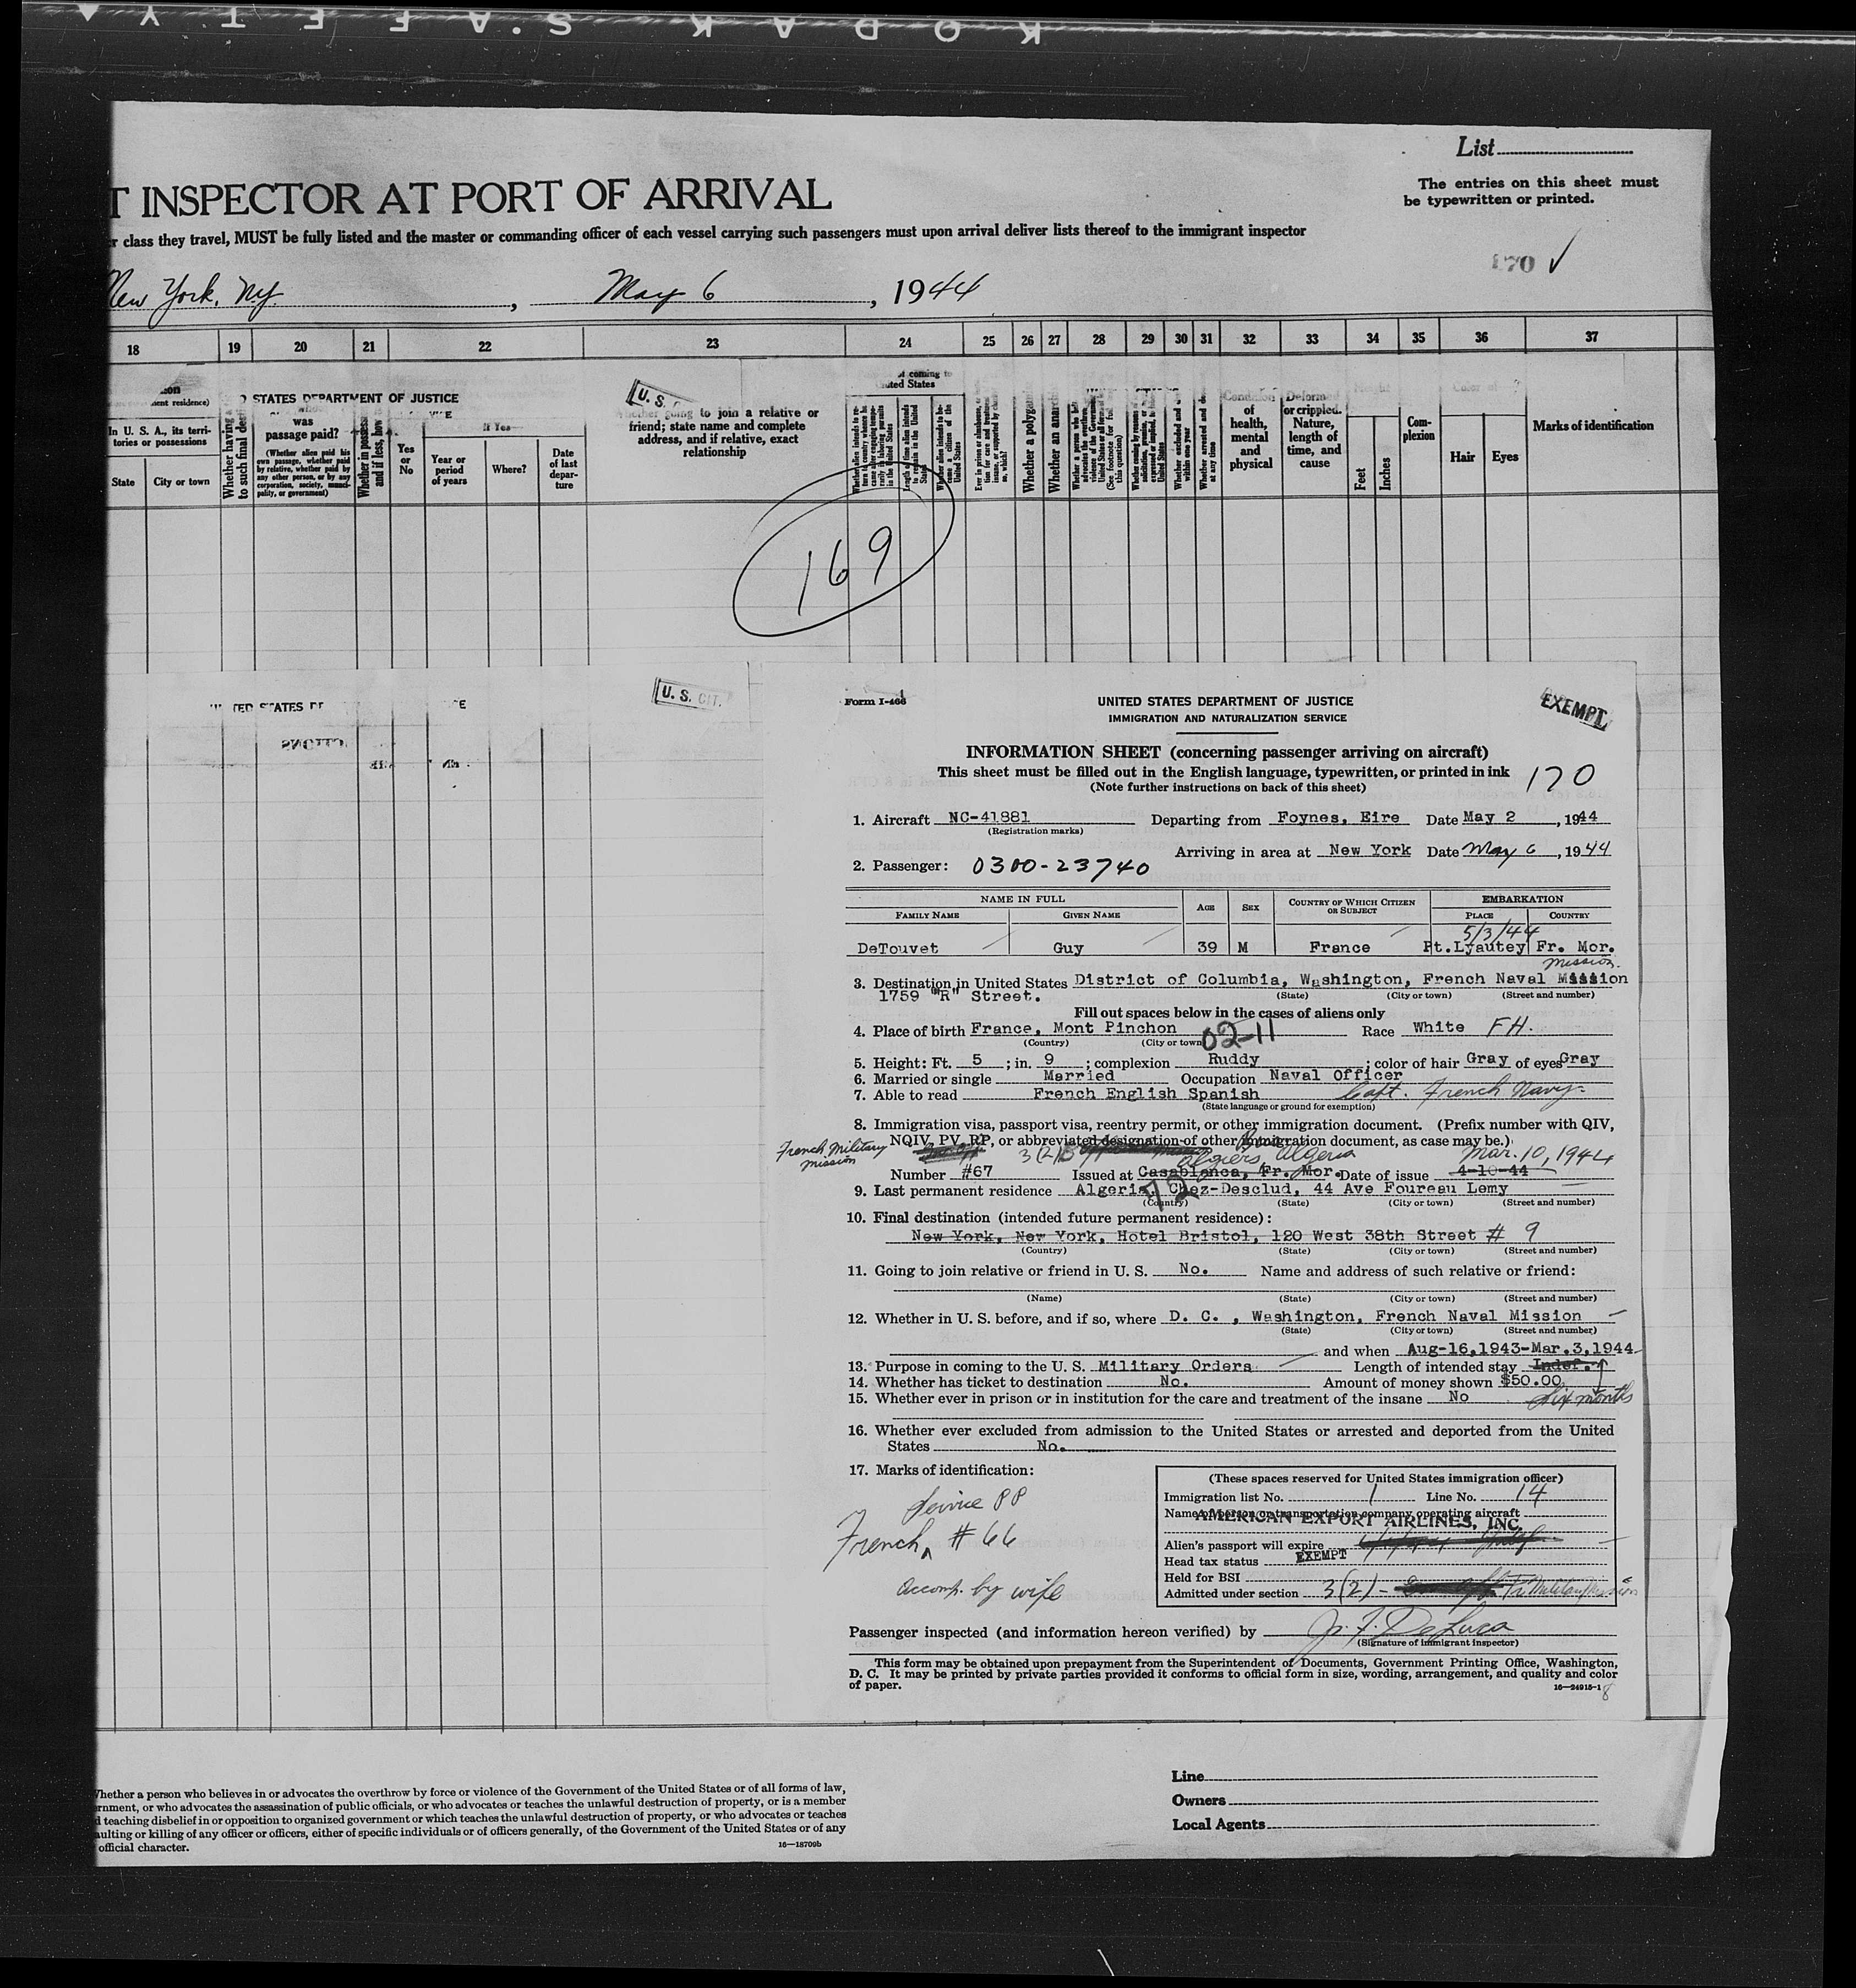 KODAK SAFETY
List
The entries on this sheet must
be typewritten or printed.
T INSPECTOR AT PORT OF ARRIVAL
r class they travel, MUST be fully listed and the master or commanding officer of each vessel carrying such passengers must upon arrival deliver lists thereof to the immigrant inspector
170 ✓
New York, NY, May 6, 1944
18 19 20 21 22 23 24 25 26 27 28 29 30 31 32 33 34 35 36 37
STATES DEPARTMENT OF JUSTICE
U. S.
In U. S. A., its terri-
tories or possessions
State
City or town
Whether having
to such final
was
passage paid?
(Whether alien paid his
own passage, whether paid
by relative, whether paid by
any other person, or by any
corporation, society, munici-
pality, or government)
Yes
or
No
If Yes
Year or
period
of years
Where?
Date
of last
depar-
ture
Whether going to join a relative or
friend; state name and complete
address, and if relative, exact
relationship
of coming to
United States
Whether a polyga
Whether an anar
Condition
of
health,
mental
and
physical
Deformed
or crippled.
Nature,
length of
time, and
cause
Feet
Inches
Com-
plexion
Hair
Eyes
Marks of identification
169
U. S. CIT.
Form I-466
UNITED STATES DEPARTMENT OF JUSTICE
IMMIGRATION AND NATURALIZATION SERVICE
EXEMPT
INFORMATION SHEET (concerning passenger arriving on aircraft)
This sheet must be filled out in the English language, typewritten, or printed in ink
170
(Note further instructions on back of this sheet)
1. Aircraft NC-41881 Departing from Foynes, Eire Date May 2, 1944
(Registration marks)
Arriving in area at New York Date May 6, 1944
2. Passenger: 0300-23740
NAME IN FULL
FAMILY NAME
GIVEN NAME
AGE
SEX
COUNTRY OF WHICH CITIZEN
OR SUBJECT
EMBARKATION
PLACE
COUNTRY
5/3/44
DeTouvet Guy 39 M France Pt.Lyautey Fr. Mor.
Mission
3. Destination in United States District of Columbia, Washington, French Naval Mission
1759 "R" Street.
(State) (City or town) (Street and number)
Fill out spaces below in the cases of aliens only
4. Place of birth France, Mont Pinchon Race White FH.
(Country) (City or town)
02-11
5. Height: Ft. 5; in. 9; complexion Ruddy; color of hair Gray of eyes Gray
6. Married or single Married Occupation Naval Officer
7. Able to read French English Spanish Capt. French Navy
(State language or ground for exemption)
8. Immigration visa, passport visa, reentry permit, or other immigration document. (Prefix number with QIV,
NQIV, PV, RP, or abbreviated designation of other immigration document, as case may be.)
French Military
mission
3(2)
Algiers, Algeria
Mar. 10, 1944
Number #67 Issued at Casablanca, Fr. Mor. Date of issue 4-10-44
9. Last permanent residence Algeria, Chez-Desclud, 44 Ave Foureau Lemy
72
(Country) (State) (City or town) (Street and number)
10. Final destination (intended future permanent residence):
New York, New York, Hotel Bristol, 120 West 38th Street # 9
(Country) (State) (City or town) (Street and number)
11. Going to join relative or friend in U. S. No. Name and address of such relative or friend:
(Name) (State) (City or town) (Street and number)
12. Whether in U. S. before, and if so, where D. C., Washington, French Naval Mission
(State) (City or town) (Street and number)
and when Aug-16,1943-Mar.3,1944
13. Purpose in coming to the U. S. Military Orders Length of intended stay Indef.
14. Whether has ticket to destination No. Amount of money shown $50.00
15. Whether ever in prison or in institution for the care and treatment of the insane No
Six months
16. Whether ever excluded from admission to the United States or arrested and deported from the United
States No.
17. Marks of identification:
Service PP
French, # 66
accomp. by wife
(These spaces reserved for United States immigration officer)
Immigration list No. 1 Line No. 14
Name of person or transportation company operating aircraft
AMERICAN EXPORT AIRLINES, INC.
Alien's passport will expire
Head tax status EXEMPT
Held for BSI
Admitted under section 3(2) - Fr Military Mission
Passenger inspected (and information hereon verified) by J. F. DeLuca
(Signature of immigrant inspector)
This form may be obtained upon prepayment from the Superintendent of Documents, Government Printing Office, Washington,
D. C. It may be printed by private parties provided it conforms to official form in size, wording, arrangement, and quality and color
of paper.
16—24915-1
Whether a person who believes in or advocates the overthrow by force or violence of the Government of the United States or of all forms of law,
rnment, or who advocates the assassination of public officials, or who advocates or teaches the unlawful destruction of property, or is a member
d teaching disbelief in or opposition to organized government or which teaches the unlawful destruction of property, or who advocates or teaches
aulting or killing of any officer or officers, either of specific individuals or of officers generally, of the Government of the United States or of any
official character.
16—18709b
Line
Owners
Local Agents